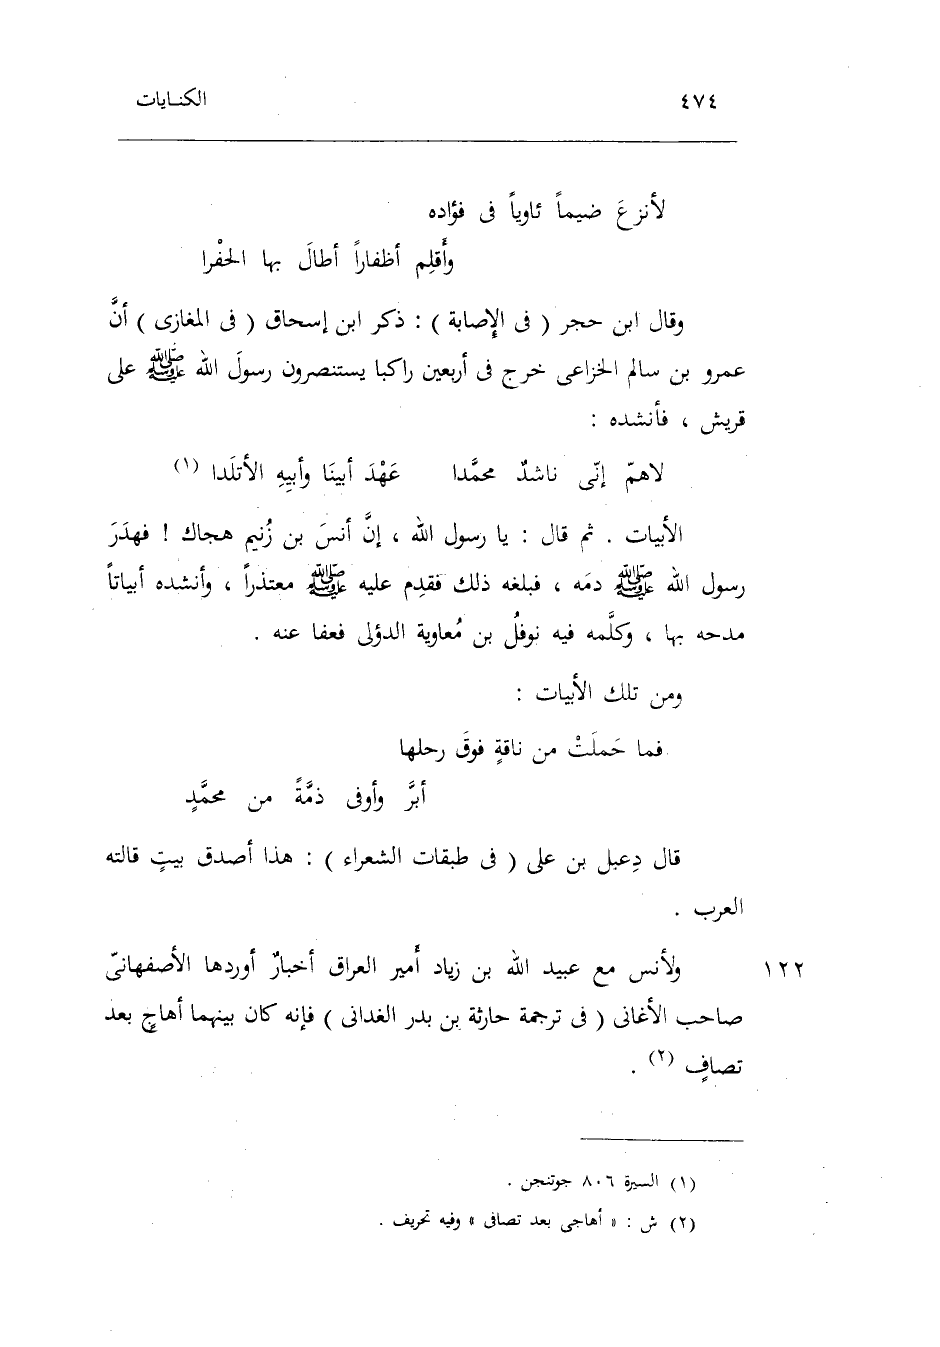 ٤٧٤ الكنايات
لأنزعَ ضيماً ثاوياً فى فؤاده
وأَقلِم أظفاراً أطالَ بها الحفْرا
وقال ابن حجر ( فى الإِصابة ) : ذكر ابن إسحاق ( فى المغازى ) أنَّ
عمرو بن سالم الخزاعى خرج فى أربعين راكبا يستنصرون رسولَ الله ﷺ على
قريش ، فأنشده :
لاهمّ إنّى ناشدٌ محمَّدا عَهْدَ أبينَا وأبيِهِ الأتلَدا (١)
الأبيات . ثم قال : يا رسول الله ، إنَّ أنسَ بن زُنيم هجاك ! فهدَرَ
رسول الله ﷺ دمَه ، فبلغه ذلك فقدِم عليه ﷺ معتذراً ، وأنشده أبياتاً
مدحه بها ، وكلَّمه فيه نوفلُ بن مُعاوية الدؤلى فعفا عنه .
ومن تلك الأبيات :
فما حَملَتْ من ناقةٍ فوقَ رحلها
أبرَّ وأوفى ذمَّةً من محمَّدٍ
قال دِعبل بن على ( فى طبقات الشعراء ) : هذا أصدق بيتٍ قالته
العرب .
١٢٢ ولأنس مع عبيد الله بن زياد أمير العراق أخبارٌ أوردها الأصفهانىّ
صاحب الأغانى ( فى ترجمة حارثة بن بدر الغدانى ) فإنه كان بينهما أهاجٍ بعد
تصافٍ (٢) .
(١) السيرة ٨٠٦ جوتنجن .
(٢) ش : « أهاجى بعد تصافى » وفيه تحريف .